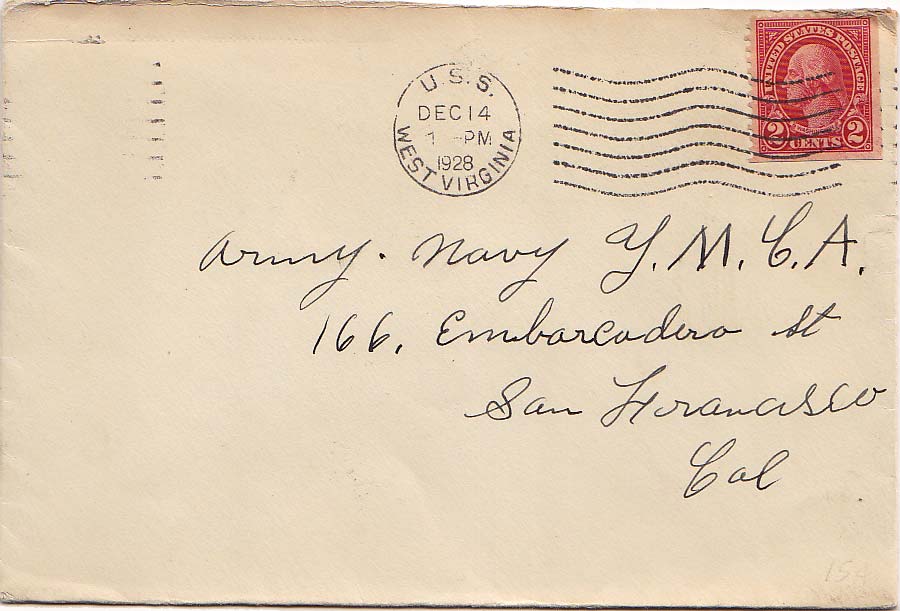 U.S.S.
DEC 14
1 -PM
1928
WEST VIRGINIA
UNITED STATES POSTAGE
2 CENTS 2
Army. Navy Y.M.C.A.
166. Embarcadero St
San Francisco
Cal